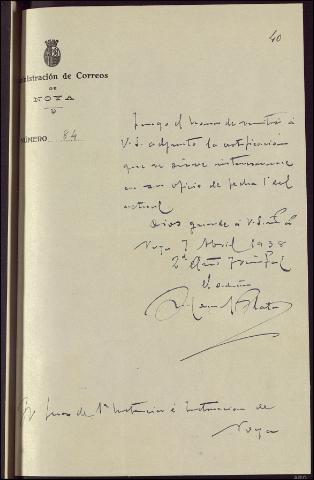 40
Administración de Correos
DE
NOYA
NÚMERO 84
Tengo el honor de remitir á
V. S. adjunto la certificacion
que se sirve interesarme
en su oficio de fecha 1º del
actual
Dios guarde á V. S.
Noya 7 Abril 1938
2º Año Triunfal
Sr. Juez de 1ª Instancia é Instruccion de
Noya